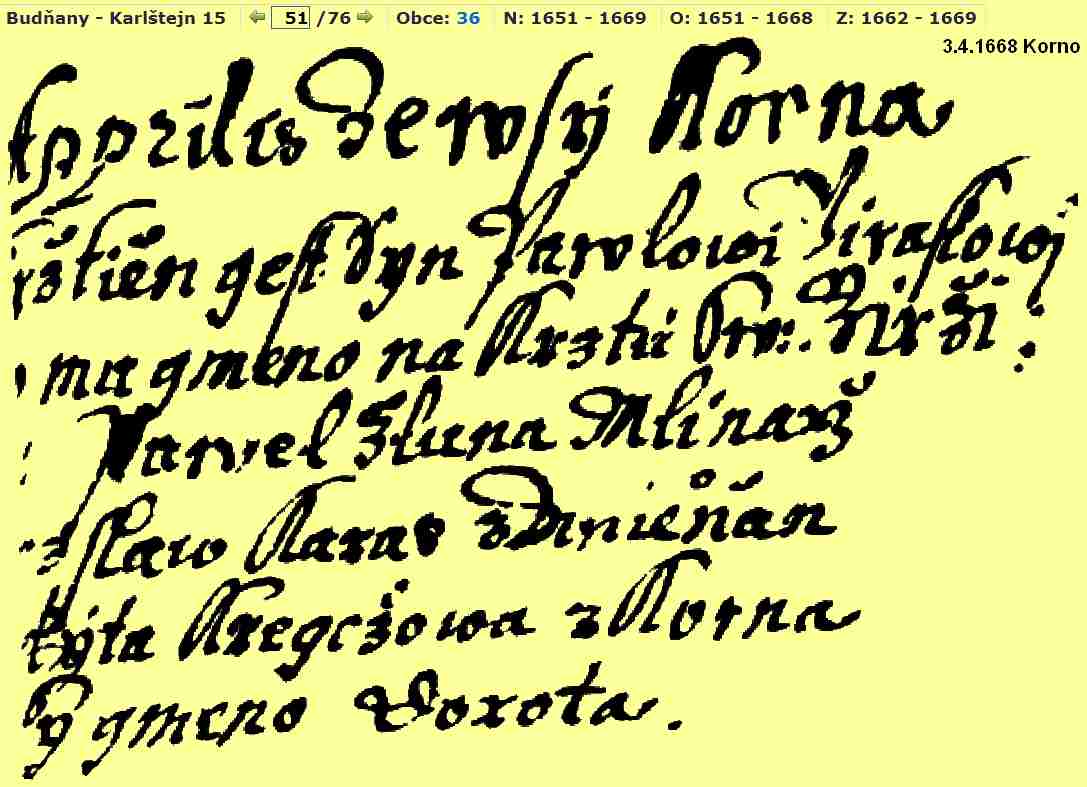 Budňany - Karlštejn 15 51 /76 Obce: 36 N: 1651 - 1669 O: 1651 - 1668 Z: 1662 - 1669
3.4.1668 Korno
Apprilis ze wsy Korna
krztien gest Syn Pawlowi Jiraskowj
mu gmeno na Krztu Jirzi:
Pawel Sluna Mlinarz
slaw Karas z Budnian
Kregczowa z Korna
gmeno Dorota.